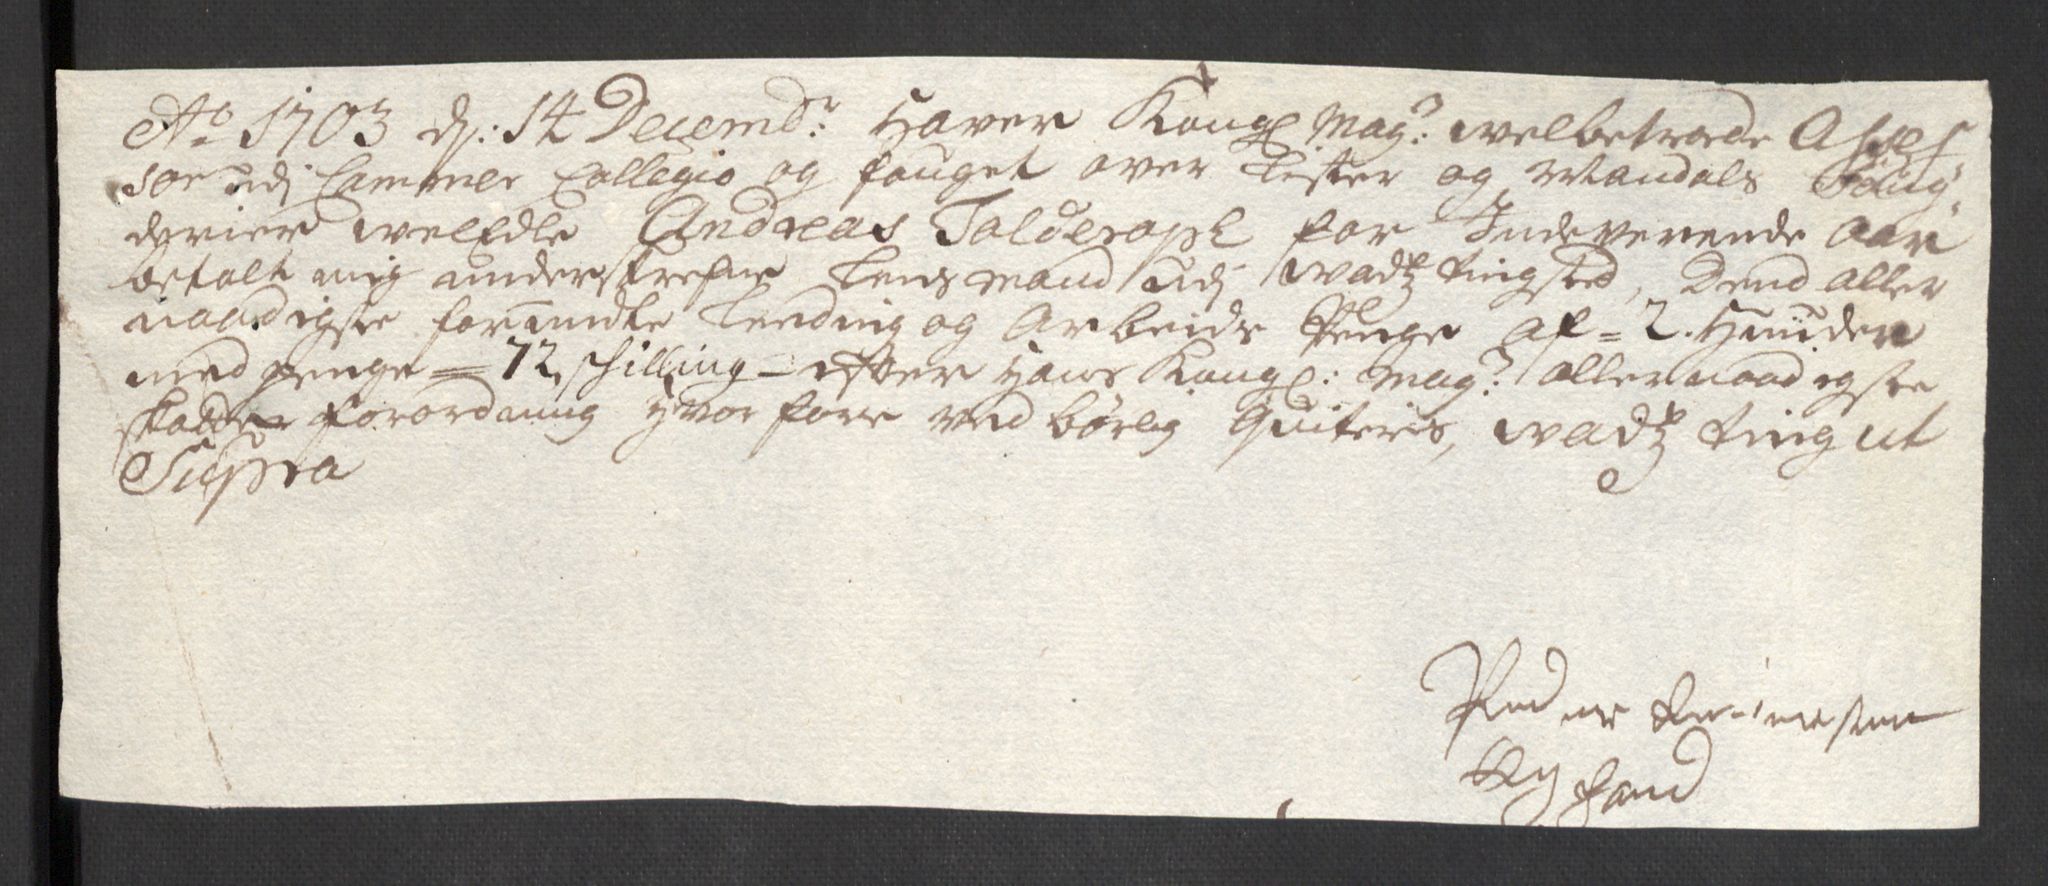 Ao 1703 dj: 14 Decembr: Haver Kongl May:t welbetroede Asses
sor udj Cammer Collegio og fouget over Lister og Mandals
derier weledle Andreas Tolderoph for Indeverende Aar
betalt mig underskrefne Lensmand udj Wadtz tingsted, Dend aller
naadigste forundte Og Arbeids Penge af = 2. Hunder
med penge = 72 schilling = efter Hans Kongl: May:t allernaadigste
skatte Forordning hvor fore ved børlig Quiteris, Wadtz ting ut
Supra
Peder
Egh hand